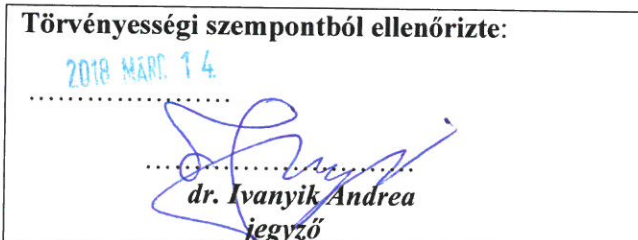 Törvényességi szempontból ellenőrizte:
2018 MÁRC. 14.
......................
..............................
dr. Ivanyik Andrea
jegyző